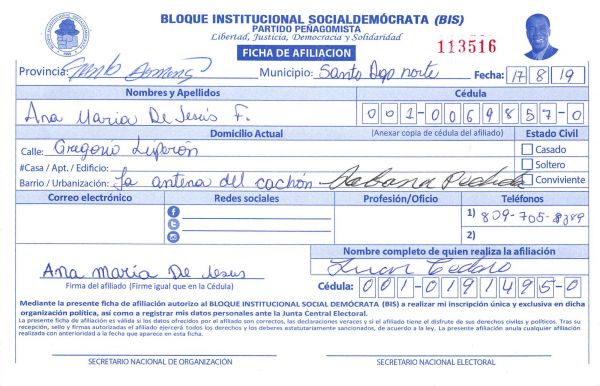 BLOQUE INSTITUCIONAL SOCIALDEMÓCRATA (BIS)
PARTIDO PEÑAGOMISTA
Libertad, Justicia, Democracia y Solidaridad
FICHA DE AFILIACION
113516
Provincia: Santo Domingo Municipio: Santo Dgo norte Fecha: 17 8 19
Nombres y Apellidos Cédula
Ana Maria De Jesús F. 001-0069857-0
Domicilio Actual (Anexar copia de cédula del afiliado) Estado Civil
Calle: Gregorio Luperón Casado
#Casa / Apt. / Edificio: Soltero
Barrio / Urbanización: La antena del cachón Sabana Perdida Conviviente
Correo electrónico Redes sociales Profesión/Oficio Teléfonos
1) 809-705-8389
2)
Nombre completo de quien realiza la afiliación
Ana María De Jesus
Firma del afiliado (Firme igual que en la Cédula) Cédula: 001-0191495-0
Mediante la presente ficha de afiliación autorizo al BLOQUE INSTITUCIONAL SOCIAL DEMÓCRATA (BIS) a realizar mi inscripción única y exclusiva en dicha
organización política, así como a registrar mis datos personales ante la Junta Central Electoral.
La presente ficha de afiliación es válida si los datos ofrecidos por el afiliado son correctos, las declaraciones veraces y si el afiliado tiene el disfrute de sus derechos civiles y políticos. Tras su
recepción, sello y firmas autorizadas el afiliado ejercerá todos los derechos y deberes estatutariamente sancionados, de acuerdo a la ley. La presente afiliación anula cualquier afiliación
realizada con anterioridad a la fecha que aparece en esta ficha.
SECRETARIO NACIONAL DE ORGANIZACIÓN SECRETARIO NACIONAL ELECTORAL